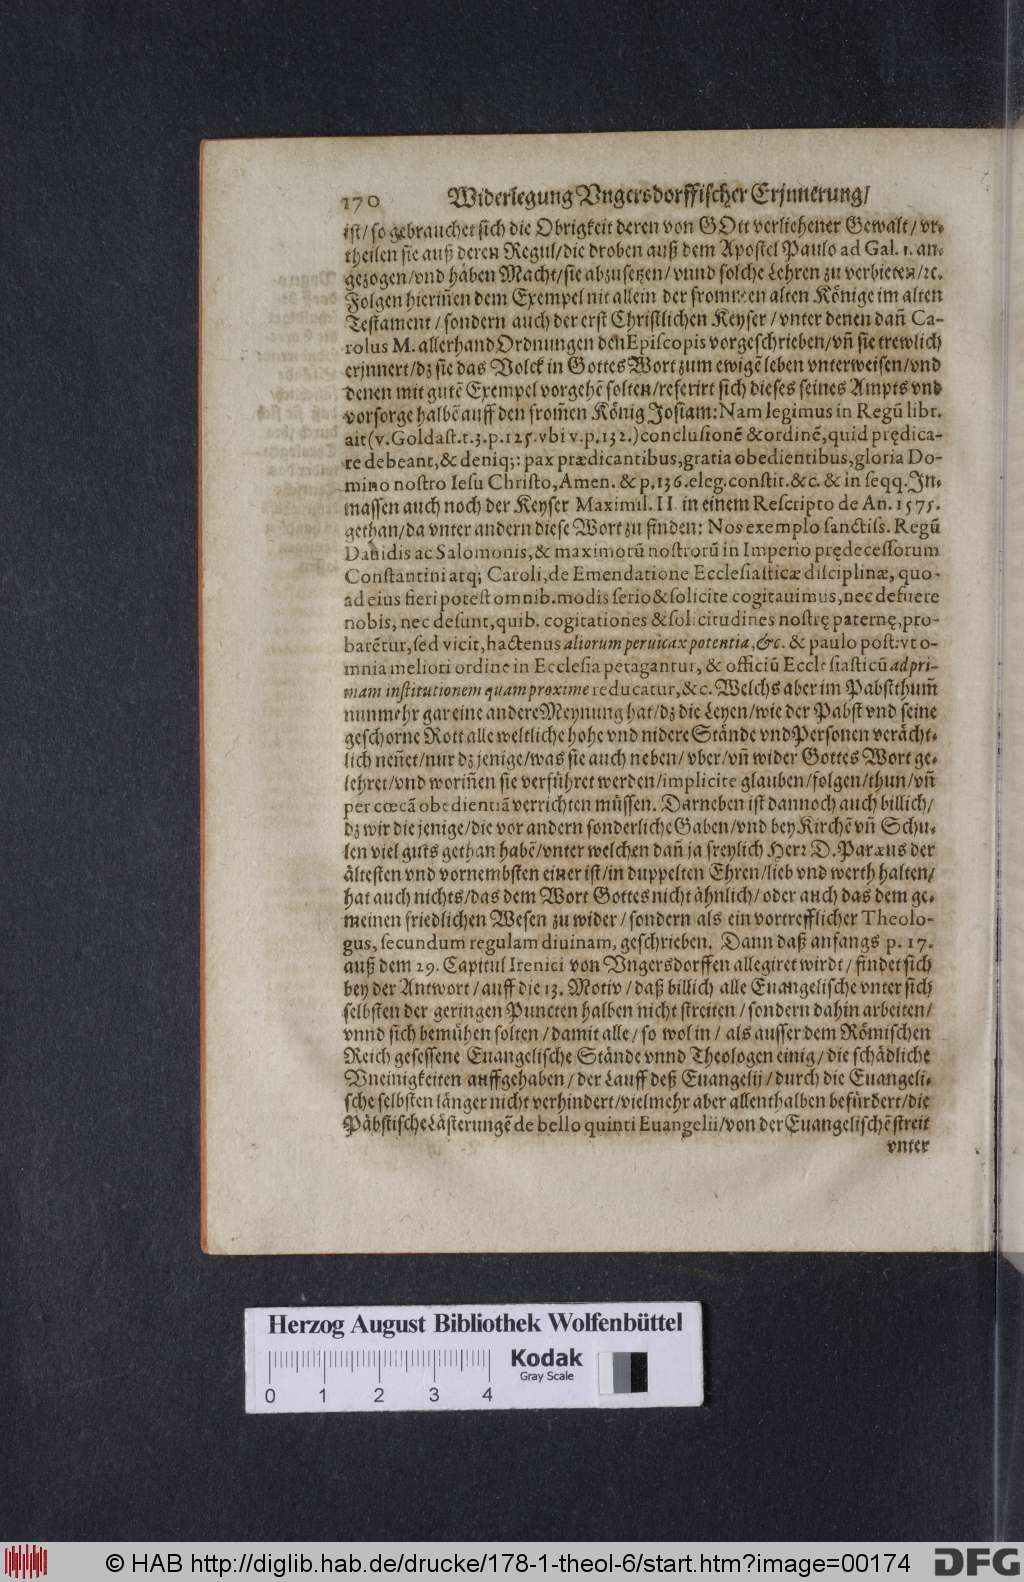 170 Widerlegung Vngersdorffischer Erjnnerung/
ist/ so gebrauchet sich die Obrigkeit deren von GOtt verliehener Gewalt/ vr-
theilen sie auß deren Regul/die droben auß dem Apostel Paulo ad Gal. 1. an-
gezogen/vnd haben Macht/sie abzusetzen/ vnnd solche Lehren zu verbieten/ꝛc.
Folgen hieriñen dem Exempel nit allein der frommen alten Könige im alten
Testament/ sondern auch der erst Christlichen Keyser/ vnter denen dañ Ca-
rolus M. allerhand Ordnungen den Episcopis vorgeschrieben/vñ sie trewlich
erjnnert/dz sie das Volck in Gottes Wort zum ewigẽ leben vnterweisen/vnd
denen mit gutẽ Exempel vorgehẽ solten/referirt sich dieses seines Ampts vnd
vorsorge halbẽ auff den from̃en König Josiam: Nam legimus in Regũ libr.
ait (v. Goldast. t. 3. p. 125. vbi v. p. 132.) conclusionẽ & ordinẽ, quid prędica-
re debeant, & deniq;: pax prædicantibus, gratia obedientibus, gloria Do-
mino nostro Iesu Christo, Amen. & p. 136. eleg. constit. &c. & in seqq. In-
massen auch noch der Keyser Maximil. II. in einem Rescripto de An. 1575.
gethan/da vnter andern diese Wort zu finden: Nos exemplo sanctiss. Regũ
Dauidis ac Salomonis, & maximorũ nostrorũ in Imperio prędecessorum
Constantini atq; Caroli, de Emendatione Ecclesiasticæ disciplinæ, quo-
ad eius fieri potest omnib. modis serio & solicite cogitauimus, nec defuere
nobis, nec desunt, quib. cogitationes & solicitudines nostrę paternę, pro-
barẽtur, sed vicit, hactenus aliorum peruicax potentia, &c. & paulo post: vt o-
mnia meliori ordine in Ecclesia peragantur, & officiũ Ecclesiasticũ ad pri-
mam institutionem quam proxime reducatur, &c. Welchs aber im Pabstthum̃
nunmehr gar eine andere Meynung hat/dz die Leyen/wie der Pabst vnd seine
geschorne Rott alle weltliche hohe vnd nidere Stände vnd Personen verächt-
lich neñet/nur dz jenige/was sie auch neben/ vber/vñ wider Gottes Wort ge-
lehret/vnd woriñen sie verführet werden/implicite glauben/folgen/thun/vñ
per cœcã obedientiã verrichten müssen. Darneben ist dannoch auch billich/
dz wir die jenige/die vor andern sonderliche Gaben/vnd bey Kirchẽ vñ Schu-
len viel guts gethan habẽ/vnter welchen dañ ja freylich Herꝛ D. Paræus der
ältesten vnd vornembsten einer ist/in duppelten Ehren/lieb vnd werth halten/
hat auch nichts/das dem Wort Gottes nicht ähnlich/ oder auch das dem ge-
meinen friedlichen Wesen zu wider/ sondern als ein vortrefflicher Theolo-
gus, secundum regulam diuinam, geschrieben. Dann daß anfangs p. 17.
auß dem 29. Capitul Irenici von Vngersdorffen allegiret wirdt/ findet sich
bey der Antwort/ auff die 13. Motiv/ daß billich alle Euangelische vnter sich
selbsten der geringen Puncten halben nicht streiten/ sondern dahin arbeiten/
vnnd sich bemühen solten/ damit alle/ so wol in/ als ausser dem Römischen
Reich gesessene Euangelische Stände vnnd Theologen einig/ die schädliche
Vneinigkeiten auffgehaben/ der Lauff deß Euangelij/ durch die Euangeli-
sche selbsten länger nicht verhindert/vielmehr aber allenthalben befürdert/die
Päbstische Lästerungẽ de bello quinti Euangelii/von der Euangelischẽ streit
vnter
Herzog August Bibliothek Wolfenbüttel
Kodak
Gray Scale
0 1 2 3 4
© HAB http://diglib.hab.de/drucke/178-1-theol-6/start.htm?image=00174
DFG